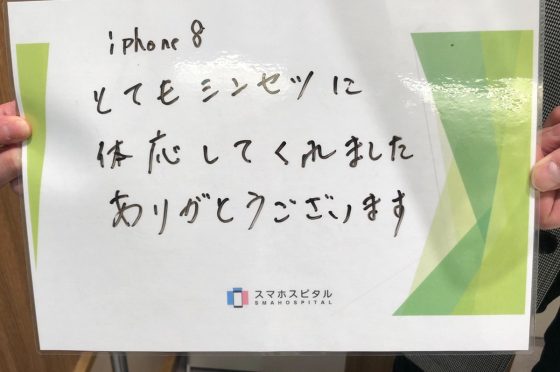 iphone 8
とてもシンセツに
体応してくれました
ありがとうございます
スマホスピタル
SMAHOSPITAL